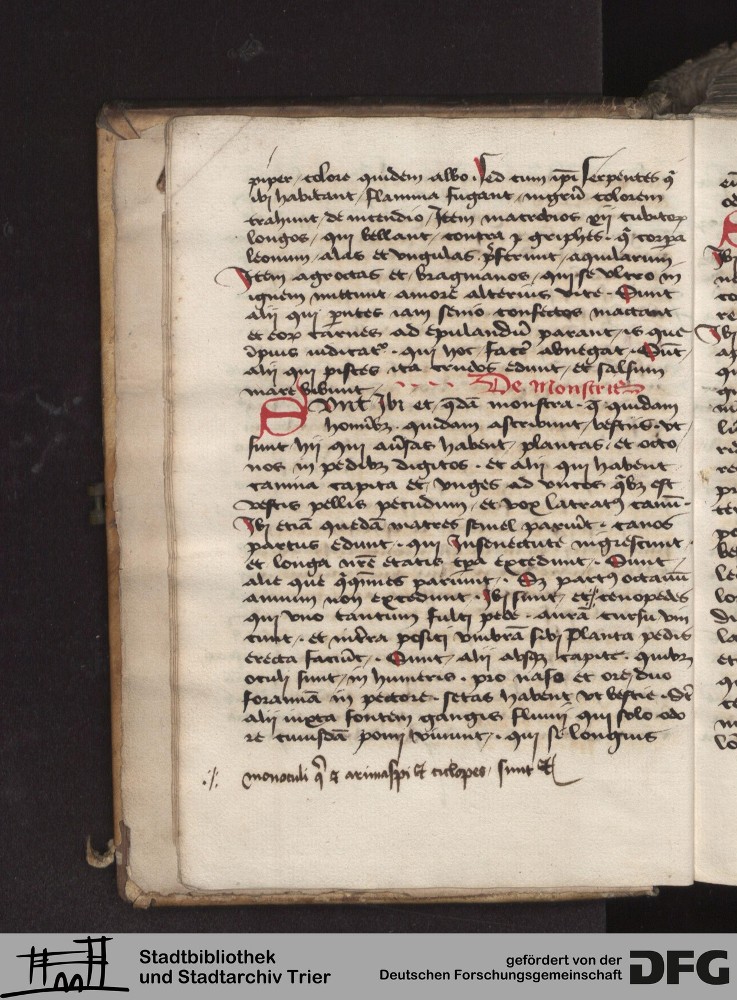 piper / colore quidem albo . Sed cum ipi Serpentes q̄
ibi habitant / flamma fugant / nigrū colorem
trahunt / de incendio / Item macrobios xii cubitoꝝ
longos / qui bellant / contra griphes . q̄ corpa
leonum / alas et ungulas p̄ferunt / aquilarum
Item agroctas et / bragmanos / qui se ultro in
ignem mittunt amorē alterius vite . Sunt
alii qui pntes iam senio confectos mactant
et eoꝝ carnes ad epulandū parant / is que
īpius iudicatr . qui hoc / facē abnegat . Sūt
alii qui pisces ita crudos edunt / et salsum
mare bibunt / De Monstris
Sunt Ibi et / q̄dā monstra . q̄ quidam
hominibꝫ . quidam ascribunt / bestiis . ut
sunt hii qui aūsas habent / plantas / et octo
nos in pedibꝫ digitos . et alii qui habent
canina capita et / unges ad uncos q̄bꝫ est
vestis pellis pecudum / et vox latratꝰ canū .
Ibi etiā quedā matres semel pariūt . canos
partus edunt . qui In senectute nigrescunt .
et longa nrē etatis tpa excedunt . Sunt
alie que q̄q̄nnes pariunt . Sꝫ partꝰ octauū
annum non excedunt . Ibi sunt / et ·/. cenopedes
qui uno tantum fulti pede . aurā cursu vin
cunt / . et in tr̄ra positi umbrā sibi planta pedis
erecta faciūt / . Sunt / alii absqꝫ capite . quibꝫ
oculi sunt / in humeris . pro naso et ore / duo
foramīa in pectore . setas habent ut bestie . St
alii iuxta fontem gangis fluuii qui solo odo
re cuiusdā pomi viuunt / . qui se longius
·/. monoculi q̄ et arimaspi et ciclopes / sunt et
Stadtbibliothek
und Stadtarchiv Trier
gefördert von der
Deutschen Forschungsgemeinschaft
DFG